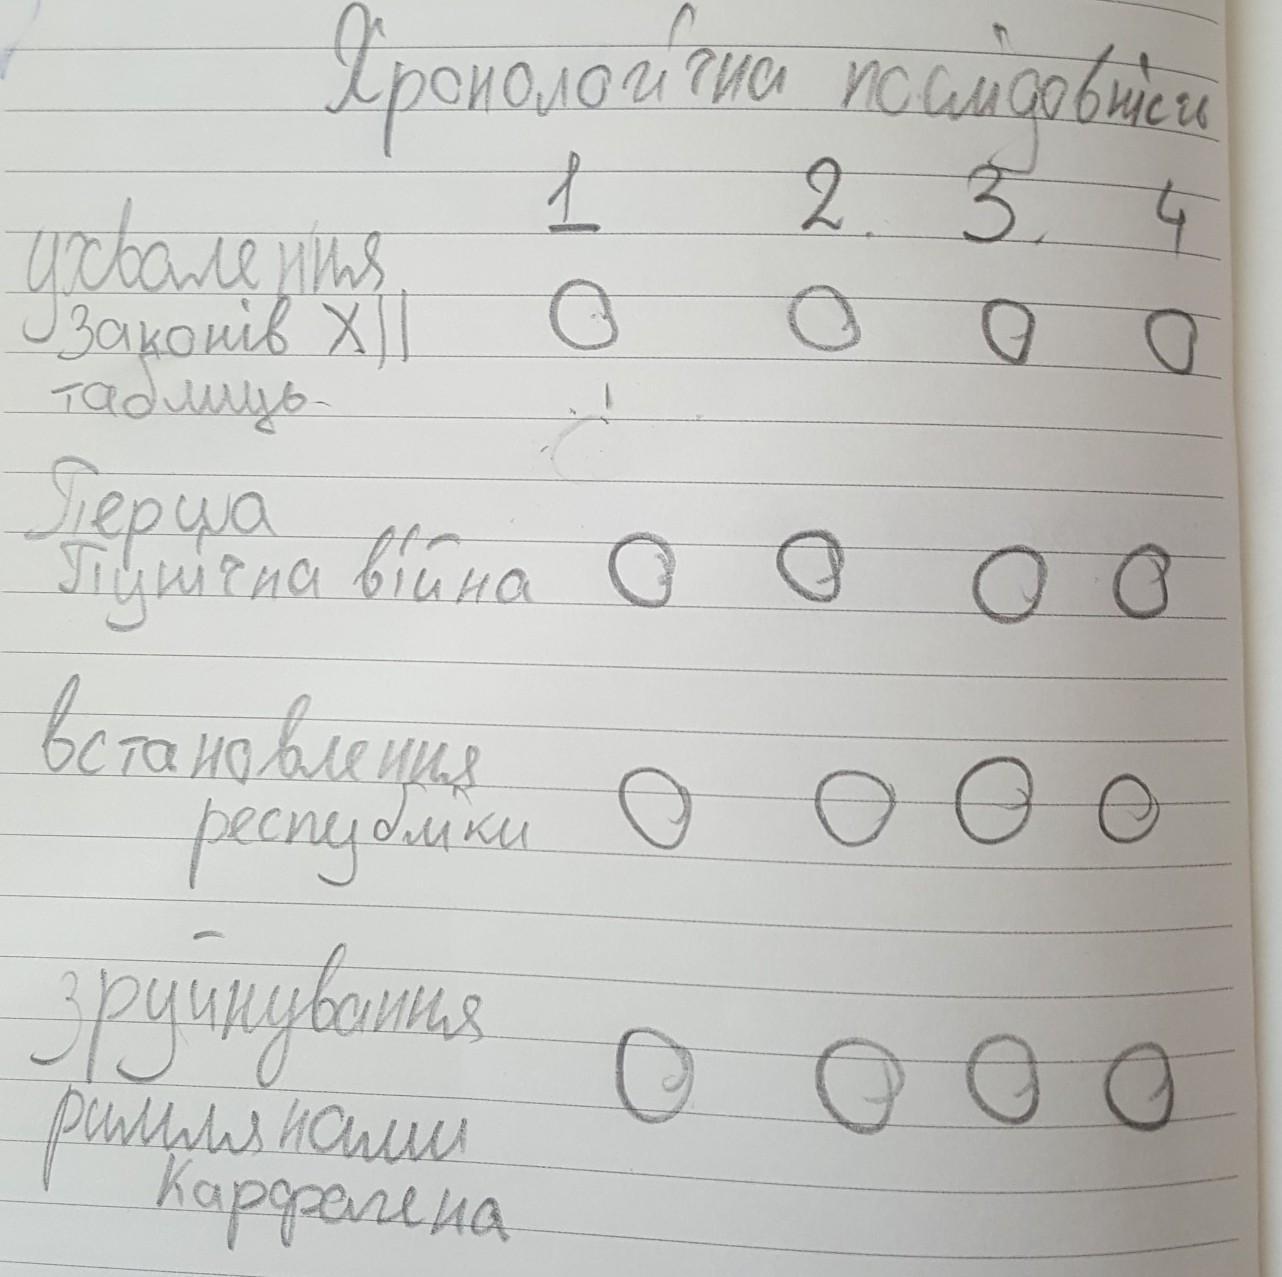 Хронологічна послідовність
1 2. 3. 4
ухвалення
Законів XII
таблиць
Перша
Пунічна війна
встановлення
республіки
зруйнування
римлянами
Карфагена